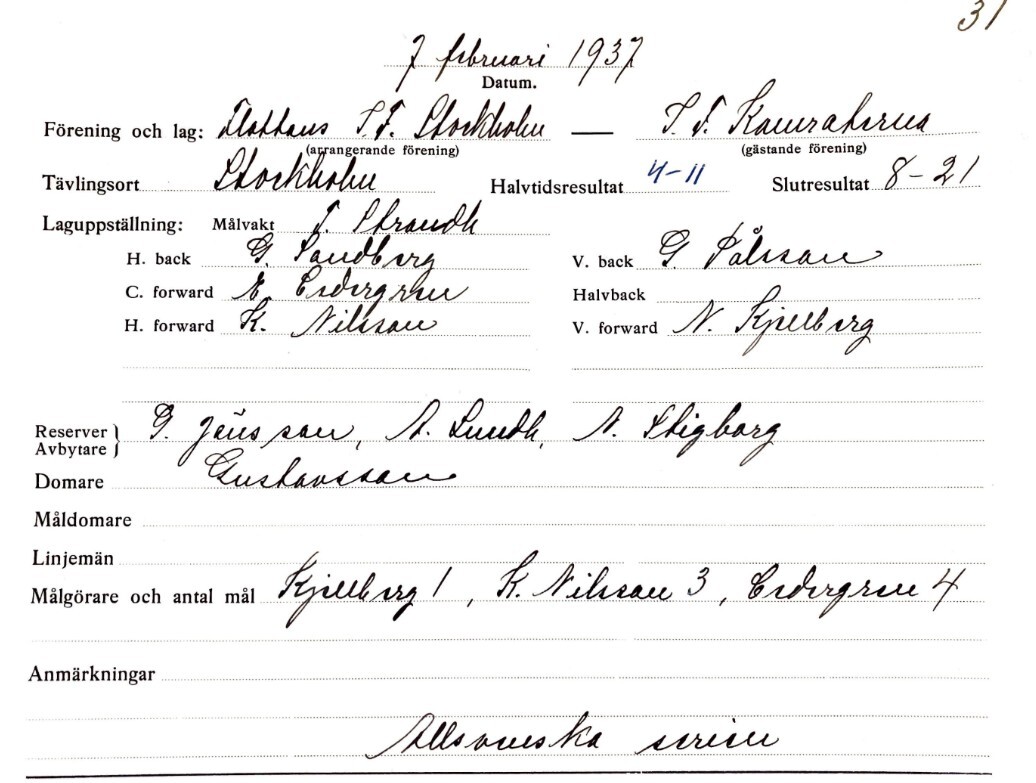 31
7 februari 1937
Datum.
Förening och lag: Flottans I.F. Stockholm — I.F. Kamraterna
(arrangerande förening) (gästande förening)
Tävlingsort Stockholm Halvtidsresultat 4-11 Slutresultat 8-21
Laguppställning: Målvakt T. Strandh
H. back G. Sandberg V. back G. Pålsson
C. forward E. Cedergren Halvback
H. forward K. Nilsson V. forward N. Kjellberg
Reserver G. Jönsson, A. Lundh, N. Stigborg
Avbytare
Domare Gustavsson
Måldomare
Linjemän
Målgörare och antal mål Kjellberg 1, K. Nilsson 3, Cedergren 4
Anmärkningar
Allsvenska serien